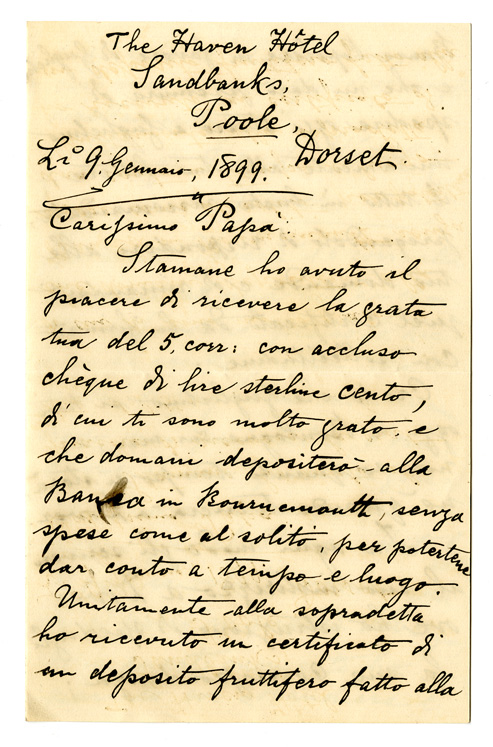 The Haven Hôtel
Sandbanks,
Poole,
Dorset.
Li 9. Gennaio, 1899.
Carissimo Papà.
Stamane ho avuto il
piacere di ricevere la grata
tua del 5, corr: con accluso
chèque di lire sterline cento,
di cui ti sono molto grato, e
che domani depositerò alla
Banca in Bournemouth, senza
spese come al solito, per potertene
dar conto a tempo e luogo.
Unitamente alla sopradetta
ho ricevuto un certificato di
un deposito fruttifero fatto alla